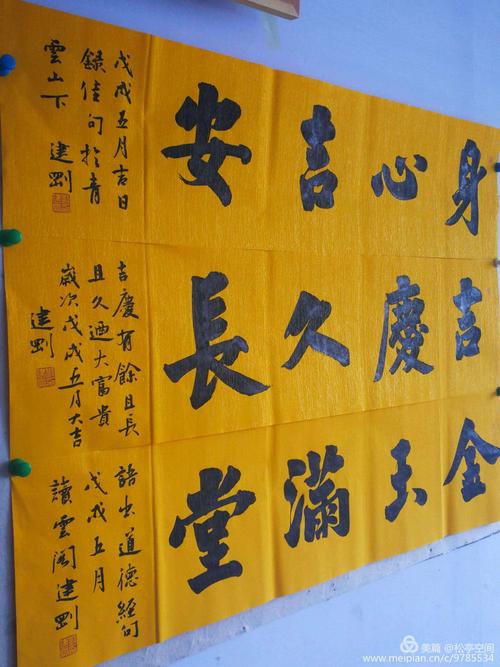 身心吉安
戊戌五月吉日
録佳句於青
雲山下 建剛
吉慶久長
吉慶有餘且長
且久迺大富貴
歲次戊戌五月大吉
建剛
金玉滿堂
語出道德經句
戊戌五月
讀雲閣建剛
美篇 @松亭空间
www.meipian.cn/c/9785534